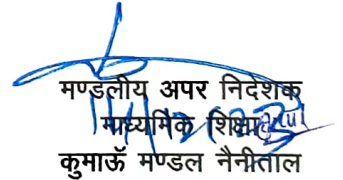 मण्डलीय अपर निदेशक
माध्यमिक शिक्षा
कुमाऊँ मण्डल नैनीताल